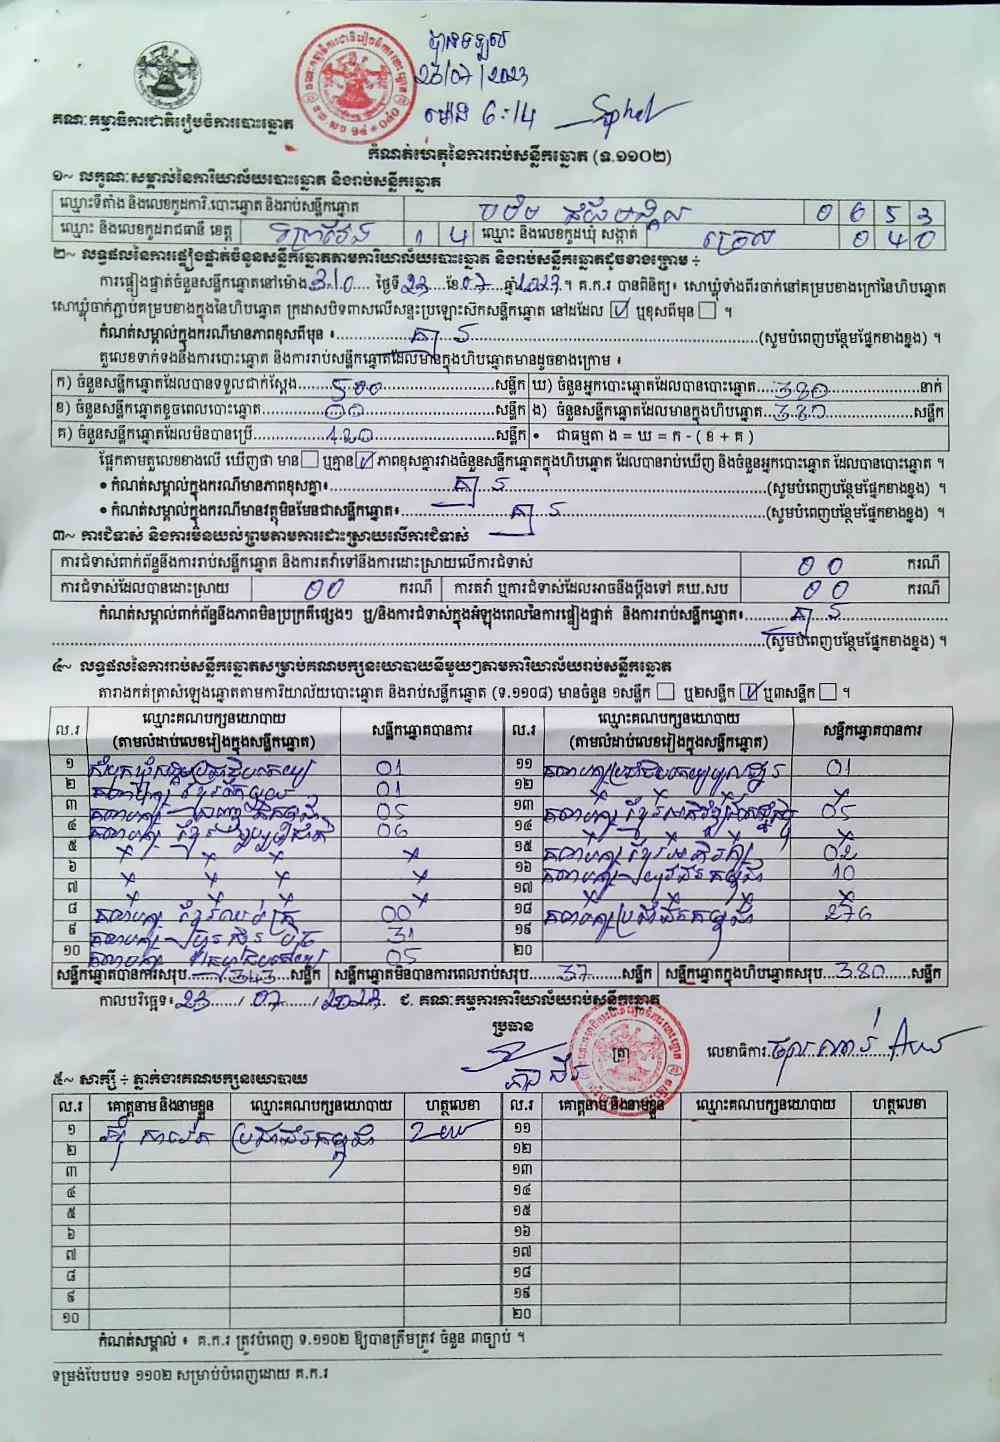 បានទទួល
23/07/2023
ម៉ោង 6:14
គណៈកម្មាធិការជាតិរៀបចំការបោះឆ្នោត
កំណត់ហេតុនៃការរាប់សន្លឹកឆ្នោត (ទ.១១០២)
១~ លក្ខណៈសម្គាល់នៃការិយាល័យបោះឆ្នោត និងរាប់សន្លឹកឆ្នោត
ឈ្មោះទីតាំង និងលេខកូដការិ.បោះឆ្នោត និងរាប់សន្លឹកឆ្នោត 0 6 5 3
ឈ្មោះ និងលេខកូដរាជធានី ខេត្ត ព្រៃវែង 1 4 ឈ្មោះ និងលេខកូដឃុំ សង្កាត់ 0 4 0
២~ លទ្ធផលនៃការផ្ទៀងផ្ទាត់ចំនួនសន្លឹកឆ្នោតតាមការិយាល័យបោះឆ្នោត និងរាប់សន្លឹកឆ្នោតដូចខាងក្រោម ÷
ការផ្ទៀងផ្ទាត់ចំនួនសន្លឹកឆ្នោតនៅម៉ោង 3:10 ថ្ងៃទី 23 ខែ 07 ឆ្នាំ 2023 ។ គ.ក.រ បានពិនិត្យ៖ សោឃ្លុំទាំងពីរចាក់នៅគម្របខាងក្រៅនៃហិបឆ្នោត
សោឃ្លុំចាក់ភ្ជាប់គម្របខាងក្នុងនៃហិបឆ្នោត ក្រដាសបិទពាសលើសន្ទះប្រឡោះស៊កសន្លឹកឆ្នោត នៅដដែល ☑ ឬខុសពីមុន ☐ ។
កំណត់សម្គាល់ក្នុងករណីមានភាពខុសពីមុន ៖ គ្មាន (សូមបំពេញបន្ថែមផ្នែកខាងខ្នង) ។
តួលេខទាក់ទងនឹងការបោះឆ្នោត និងការរាប់សន្លឹកឆ្នោតដែលមានក្នុងហិបឆ្នោតមានដូចខាងក្រោម ៖
ក) ចំនួនសន្លឹកឆ្នោតដែលបានទទួលជាក់ស្តែង 500 សន្លឹក ឃ) ចំនួនអ្នកបោះឆ្នោតដែលបានបោះឆ្នោត 380 នាក់
ខ) ចំនួនសន្លឹកឆ្នោតខូចពេលបោះឆ្នោត 00 សន្លឹក ង) ចំនួនសន្លឹកឆ្នោតដែលមានក្នុងហិបឆ្នោត 380 សន្លឹក
គ) ចំនួនសន្លឹកឆ្នោតដែលមិនបានប្រើ 120 សន្លឹក • ជាធម្មតា ង = ឃ = ក - ( ខ + គ )
ផ្អែកតាមតួលេខខាងលើ ឃើញថា មាន ☐ ឬគ្មាន ☑ ភាពខុសគ្នារវាងចំនួនសន្លឹកឆ្នោតក្នុងហិបឆ្នោត ដែលបានរាប់ឃើញ និងចំនួនអ្នកបោះឆ្នោត ដែលបានបោះឆ្នោត ។
• កំណត់សម្គាល់ក្នុងករណីមានភាពខុសគ្នា៖ គ្មាន (សូមបំពេញបន្ថែមផ្នែកខាងខ្នង) ។
• កំណត់សម្គាល់ក្នុងករណីមានវត្ថុមិនមែនជាសន្លឹកឆ្នោត៖ គ្មាន (សូមបំពេញបន្ថែមផ្នែកខាងខ្នង) ។
៣~ ការជំទាស់ និងការមិនយល់ព្រមតាមការដោះស្រាយលើការជំទាស់
ការជំទាស់ពាក់ព័ន្ធនឹងការរាប់សន្លឹកឆ្នោត និងការតវ៉ាទៅនឹងការដោះស្រាយលើការជំទាស់ 0 0 ករណី
ការជំទាស់ដែលបានដោះស្រាយ 00 ករណី ការតវ៉ា ឬការជំទាស់ដែលអាចនឹងប្តឹងទៅ គឃ.សប 0 0 ករណី
កំណត់សម្គាល់ពាក់ព័ន្ធនឹងភាពមិនប្រក្រតីផ្សេងៗ ឬ/និងការជំទាស់ក្នុងអំឡុងពេលនៃការផ្ទៀងផ្ទាត់ និងការរាប់សន្លឹកឆ្នោត៖ គ្មាន
(សូមបំពេញបន្ថែមផ្នែកខាងខ្នង) ។
៤~ លទ្ធផលនៃការរាប់សន្លឹកឆ្នោតសម្រាប់គណបក្សនយោបាយនីមួយៗតាមការិយាល័យរាប់សន្លឹកឆ្នោត
តារាងកត់ត្រាសំឡេងឆ្នោតតាមការិយាល័យបោះឆ្នោត និងរាប់សន្លឹកឆ្នោត (ទ.១១០៨) មានចំនួន ១សន្លឹក ☐ ឬ២សន្លឹក ☑ ឬ៣សន្លឹក ☐ ។
ល.រ ឈ្មោះគណបក្សនយោបាយ (តាមលំដាប់លេខរៀងក្នុងសន្លឹកឆ្នោត) សន្លឹកឆ្នោតបានការ ល.រ ឈ្មោះគណបក្សនយោបាយ (តាមលំដាប់លេខរៀងក្នុងសន្លឹកឆ្នោត) សន្លឹកឆ្នោតបានការ
១ 01 ១១ 01
២ 01
៣ 05 ១៣ 05
៤ 06 ១៤
៥ ១៥ 02
៦ ១៦ 10
៧ ១៧
៨ 00 ១៨ គណបក្សប្រជាជនកម្ពុជា 276
៩ 31 ១៩
១០ 05 ២០
សន្លឹកឆ្នោតបានការសរុប 343 សន្លឹក សន្លឹកឆ្នោតមិនបានការពេលរាប់សរុប 37 សន្លឹក សន្លឹកឆ្នោតក្នុងហិបឆ្នោតសរុប 380 សន្លឹក
កាលបរិច្ឆេទ៖ 23 / 07 / 2023 ជ. គណៈកម្មការការិយាល័យរាប់សន្លឹកឆ្នោត
ប្រធាន ត្រា លេខាធិការ
៥~ សាក្សី ÷ ភ្នាក់ងារគណបក្សនយោបាយ
ល.រ គោត្តនាម និងនាមខ្លួន ឈ្មោះគណបក្សនយោបាយ ហត្ថលេខា ល.រ គោត្តនាម និងនាមខ្លួន ឈ្មោះគណបក្សនយោបាយ ហត្ថលេខា
១ ប្រជាជនកម្ពុជា ១១
២ ១២
៣ ១៣
៤ ១៤
៥ ១៥
៦ ១៦
៧ ១៧
៨ ១៨
៩ ១៩
១០ ២០
កំណត់សម្គាល់ ៖ គ.ក.រ ត្រូវបំពេញ ទ.១១០២ ឱ្យបានត្រឹមត្រូវ ចំនួន ៣ច្បាប់ ។
ទម្រង់បែបបទ ១១០២ សម្រាប់បំពេញដោយ គ.ក.រ